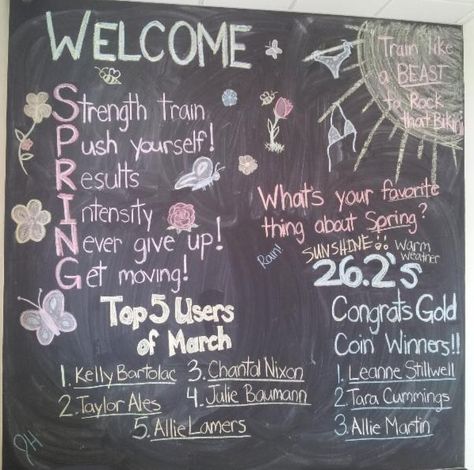 WELCOME
Train like
a BEAST
to Rock
that Bikini
Strength train
Push yourself!
Results
Intensity
Never give up!
Get moving!
What's your favorite
thing about Spring?
Rain!
SUNSHINE!!
Warm
weather
26.2's
Top 5 Users
of March
1. Kelly Bartolac
2. Taylor Ales
3. Chantal Nixon
4. Julie Baumann
5. Allie Lamers
Congrats Gold
Coin Winners!!
1. Leanne Stillwell
2. Tara Cummings
3. Allie Martin
JH